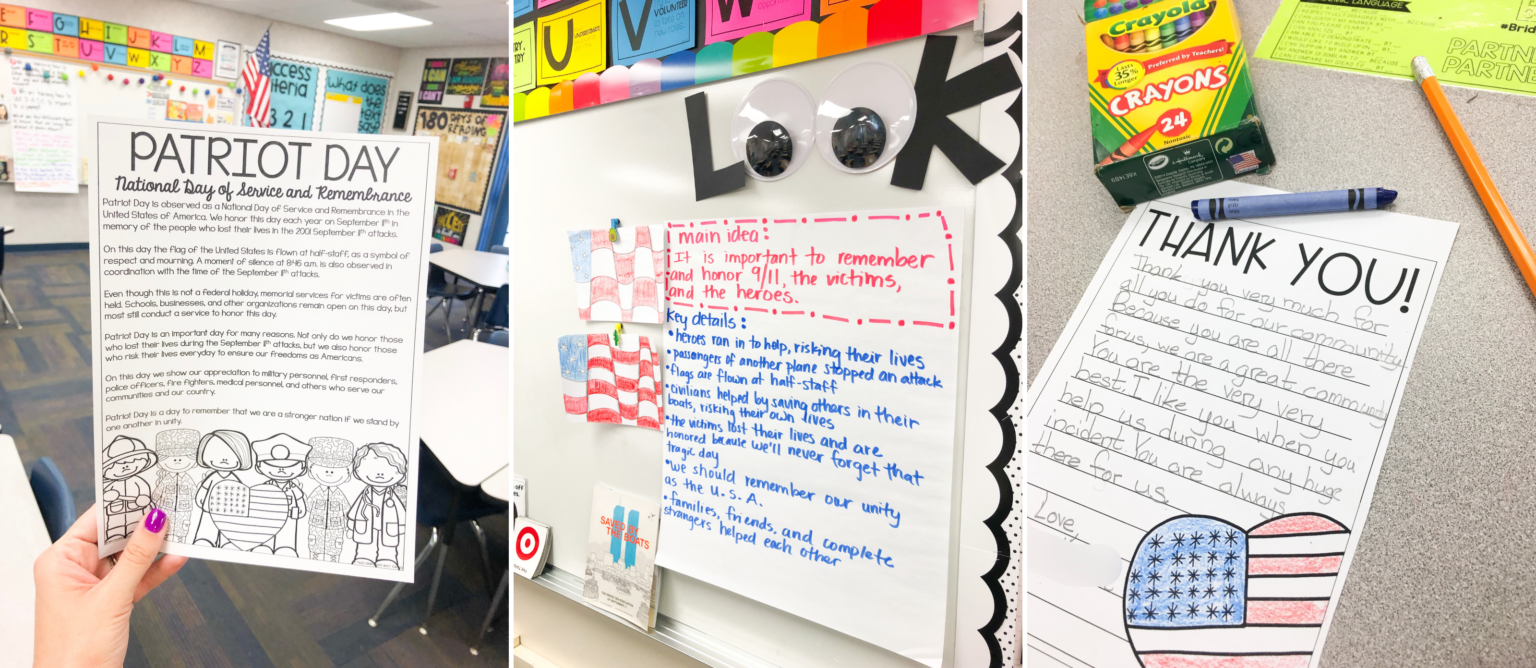 PATRIOT DAY
National Day of Service and Remembrance
Patriot Day is observed as a National Day of Service and Remembrance in the
United States of America. We honor this day each year on September 11th in
memory of the people who lost their lives in the 2001 September 11th attacks.
On this day the flag of the United States is flown at half-staff, as a symbol of
respect and mourning. A moment of silence at 8:46 a.m. is also observed in
coordination with the time of the September 11th attacks.
Even though this is not a federal holiday, memorial services for victims are often
held. Schools, businesses, and other organizations remain open on this day, but
most still conduct a service to honor this day.
Patriot Day is an important day for many reasons. Not only do we honor those
who lost their lives during the September 11th attacks, but we also honor those
who risk their lives everyday to ensure our freedoms as Americans.
On this day we show our appreciation to military personnel, first responders,
police officers, fire fighters, medical personnel, and others who serve our
communities and our country.
Patriot Day is a day to remember that we are a stronger nation if we stand by
one another in unity.
F G H I J K L M
R S T U V W X Y Z
what does
the text
say?
3 2 1
180 DAYS OF
READING
U V W
VOLUNTEER
LOOK
main idea:
It is important to remember
and honor 9/11, the victims,
and the heroes.
Key details:
• heroes ran in to help, risking their lives
• passengers of another plane stopped an attack
• flags are flown at half-staff
• civilians helped by saving others in their
boats, risking their own lives
• the victims lost their lives and are
honored because we'll never forget that
tragic day
• we should remember our unity
as the U.S.A.
• families, friends, and complete
strangers helped each other
SAVED BY
THE BOATS
Crayola
Preferred by Teachers!
Lasts
35%
Longer
CRAYONS
24
Nontoxic
Hallmark
#Brid
PARTN
PARTNE
THANK YOU!
Thank you very much for
all you do for our community
Because you are all here
for us, we are a great commundy
You are the very very
best. I like you when you
help us during any huge
incident. You are always
there for us.
Love,